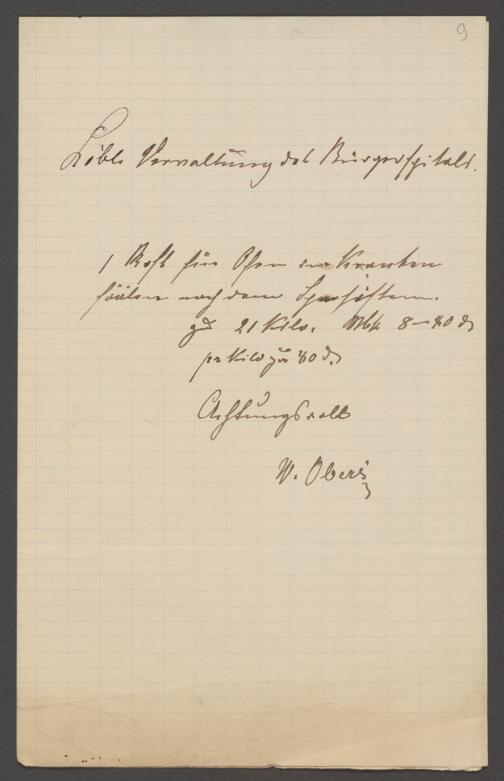 9
Löbl. Verwaltung des Bürgerspitals.
1 Rost für Ofen in Kranken
säälen nach dem
gd 21 Kilo. Mk 8-40 ₰
pr Kilo zu 40 ₰
Achtungsvoll
W. Oberi